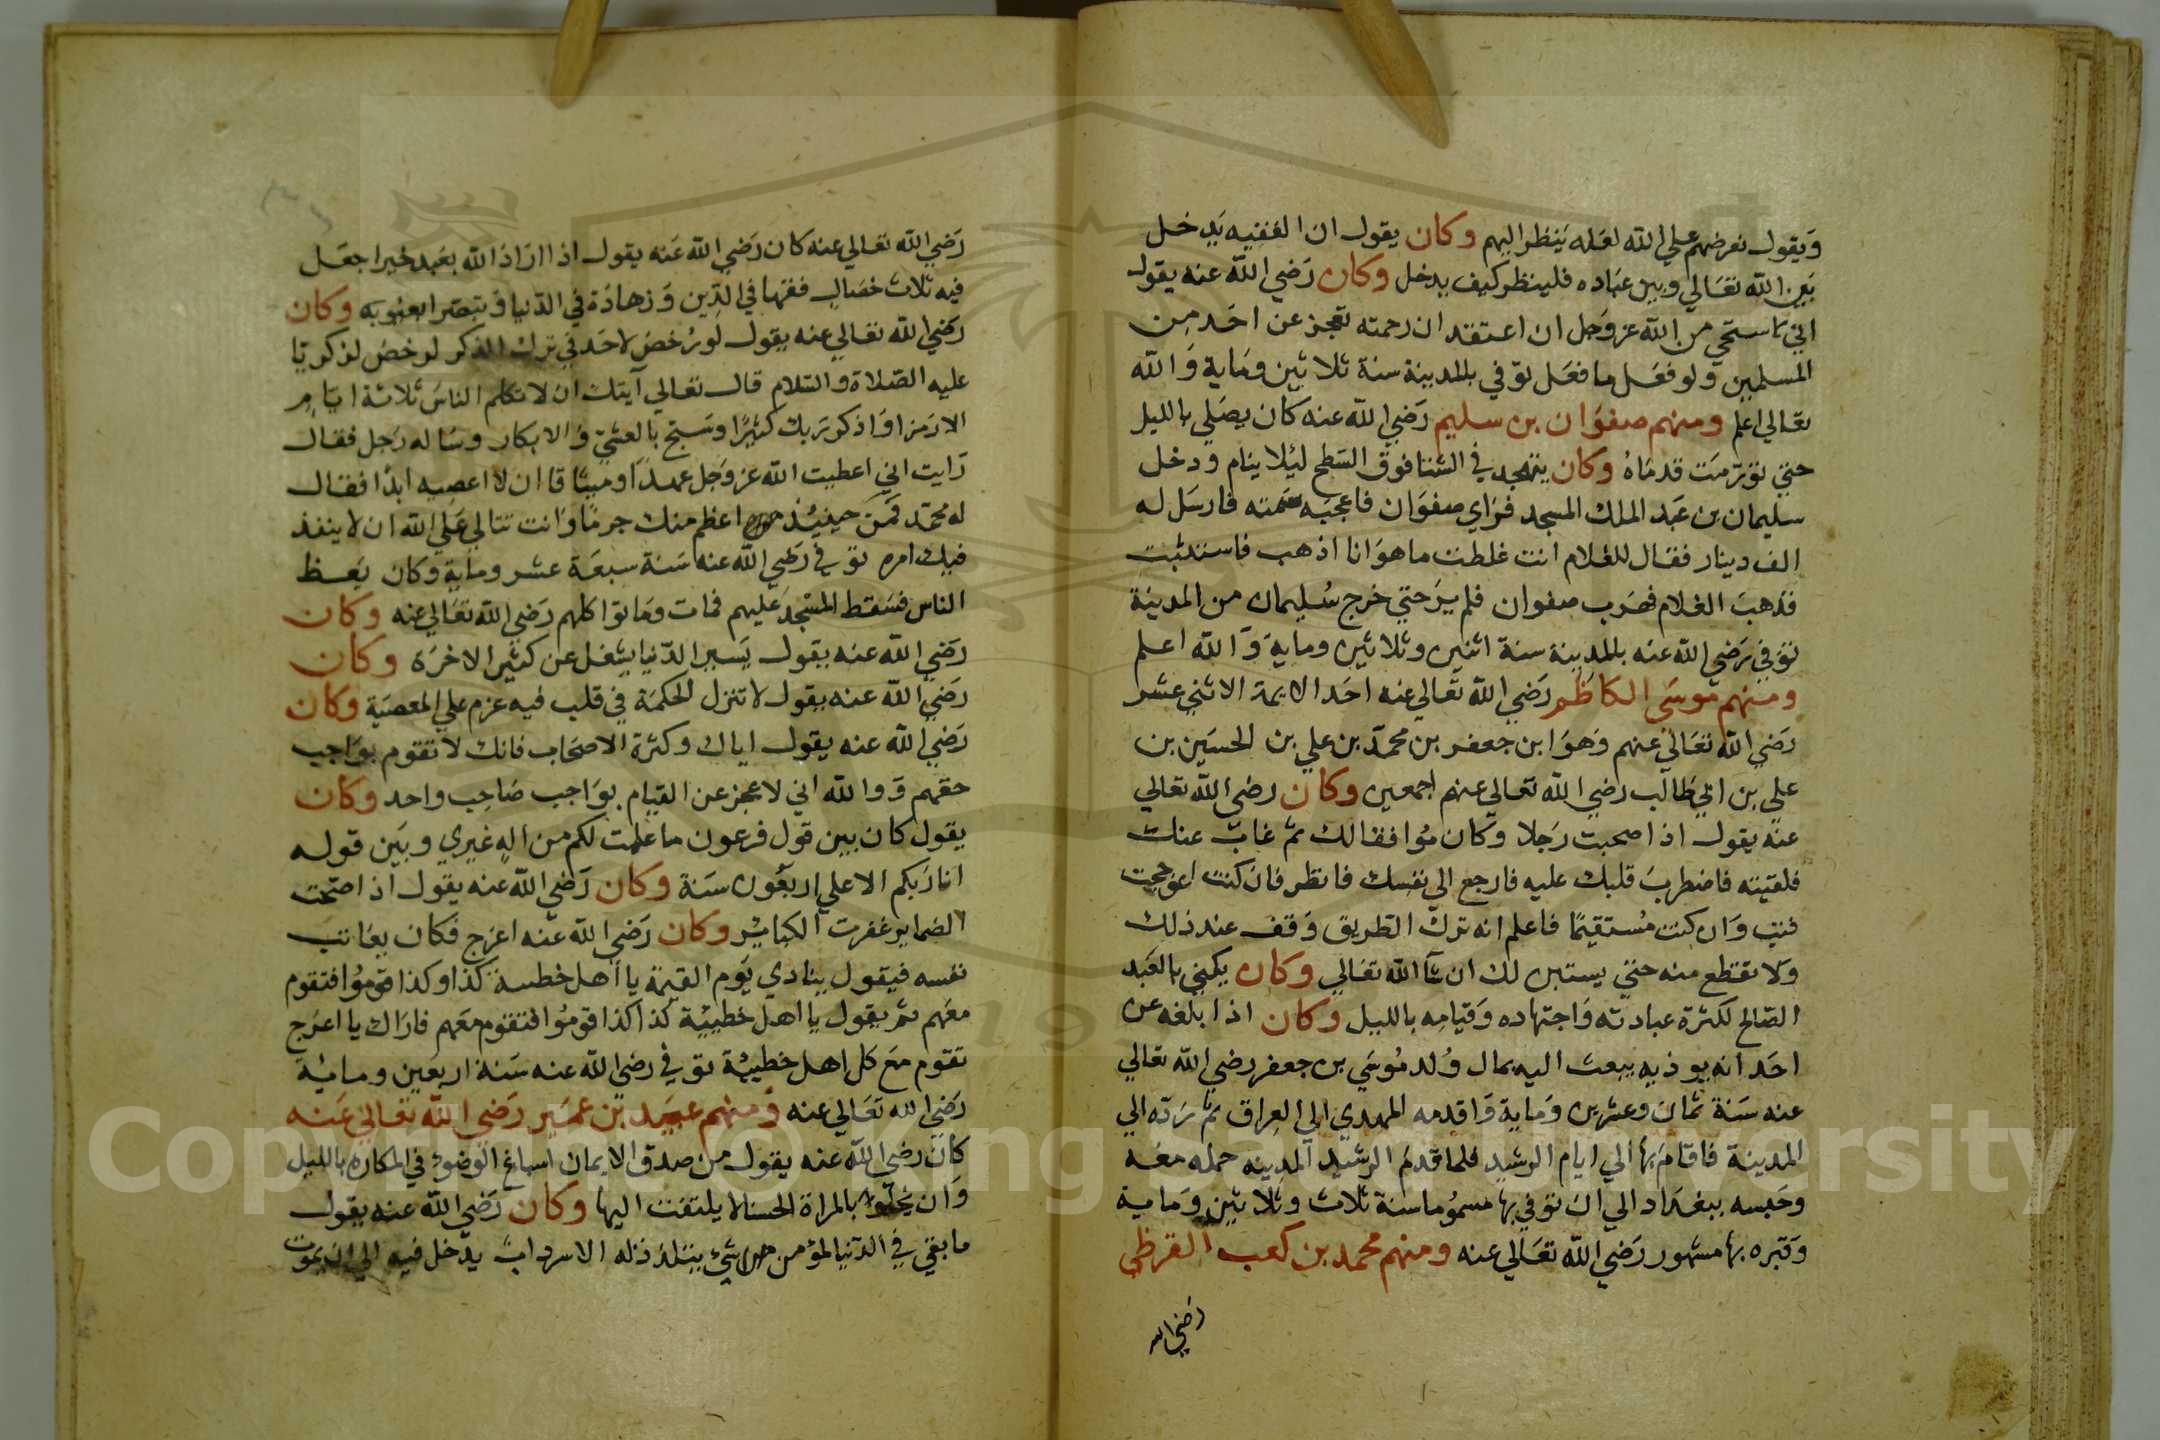 ويقول نعرضهم علي الله لعله ينظر اليهم وكان يقول ان الفقيه يدخل
بين الله تعالي وبين عباده فلينظر كيف يدخل وكان رضي الله عنه يقول
اني لاستحي من الله عز وجل ان اعتقد ان رحمته تعجز عن احد من
المسلمين ولو فعل ما فعل توفي بالمدينة سنة ثلاثين وماية والله
تعالي اعلم ومنهم صفوان بن سليم رضي الله عنه كان يصلي بالليل
حتي تورمت قدماه وكان يتهجد في الشتا فوق السطح ليلا ينام ودخل
سليمان بن عبد الملك المسجد فراي صفوان فاعجبه سمته فارسل له
الف دينار فقال للغلام انت غلطت ما هو انا اذهب فاستثبت
فذهب الغلام فهرب صفوان فلم ير حتي خرج سليمان من المدينة
توفي رضي الله عنه بالمدينة سنة اثنين وثلاثين وماية والله اعلم
ومنهم موسي الكاظم رضي الله تعالي عنه احد الايمة الاثني عشر
رضي الله تعالي عنهم وهو ابن جعفر بن محمد بن علي بن الحسين بن
علي بن ابي طالب رضي الله تعالي عنهم اجمعين وكان رضي الله تعالي
عنه يقول اذا صحبت رجلا وكان موافقا لك ثم غاب عنك
فلقيته فاضطرب قلبك عليه فارجع الي نفسك فانظر فان كنت اعوججت
فتب وان كنت مستقيما فاعلم انه ترك الطريق وقف عند ذلك
ولا تقطع منه حتي يستبين لك ان شآ الله تعالي وكان يكني بالعبد
الصالح لكثرة عبادته واجتهاده وقيامه بالليل وكان اذا بلغه عن
احد انه يوذيه يبعث اليه بمال ولد موسي بن جعفر رضي الله تعالي
عنه سنة ثمان وعشرين وماية واقدمه المهدي الي العراق ثم رده الي
المدينة فاقام بها الي ايام الرشيد فلما قدم الرشيد المدينه حمله معه
وحبسه ببغداد الي ان توفي بها مسموما سنة ثلاث وثلاثين وماية
وقبره بها مشهور رضي الله تعالي عنه ومنهم محمد بن كعب القرظي
رضي الله
رضي الله تعالي عنه كان رضي الله عنه يقول اذا اراد الله بعبد خيرا جعل
فيه ثلاث خصال فقها في الدين وزهادة في الدنيا وتبصرا بعيوبه وكان
رضي الله تعالي عنه يقول لو رخص لاحد في ترك الذكر لرخص لزكريا
عليه الصلاة والسلام قال تعالي آيتك ان لا تكلم الناس ثلاثة ايام
الا رمزا واذكر ربك كثيرا وسبح بالعشي والابكار وساله رجل فقال
رايت اني اعطيت الله عز وجل عهدا وميثاقا ان لا اعصيه ابدا فقال
له محمد فمن حينيذ اعظم منك جرما وانت تتالي علي الله ان لا ينفذ
فيك امره توفي رضي الله عنه سنة سبعة عشر وماية وكان يعظ
الناس فسقط المسجد عليهم فمات وماتوا كلهم رضي الله تعالي عنه وكان
رضي الله عنه يقول يسير الدنيا يشغل عن كثير الاخرة وكان
رضي الله عنه يقول لا تنزل الحكمة في قلب فيه عزم علي المعصية وكان
رضي الله عنه يقول اياك وكثرة الاصحاب فانك لا تقوم بواجب
حقهم ووالله اني لاعجز عن القيام بواجب صاحب واحد وكان
يقول كان بين قول فرعون ما علمت لكم من اله غيري وبين قوله
انا ربكم الاعلي اربعون سنة وكان رضي الله عنه يقول اذا صحت
الضماير غفرت الكباير وكان رضي الله عنه اعرج فكان يعاتب
نفسه فيقول ينادي يوم القيمة يا اهل خطية كذا وكذا قوموا فتقوم
معهم ثم يقول يا اهل خطيية كذا كذا قوموا فتقوم معهم فاراك يا اعرج
تقوم مع كل اهل خطيية توفي رضي الله عنه سنة اربعين وماية
رضي الله تعالي عنه ومنهم عبيد بن عمير رضي الله تعالي عنه
كان رضي الله عنه يقول من صدق الايمان اسباغ الوضوء في المكاره بالليل
وان يخلوا بالمراة الحسنا لا يلتفت اليها وكان رضي الله عنه يقول
ما بقي في الدنيا لمؤمن شيء يتلذذ له الا سرداب يدخل فيه الي ان يموت
Copyright © King Saud University